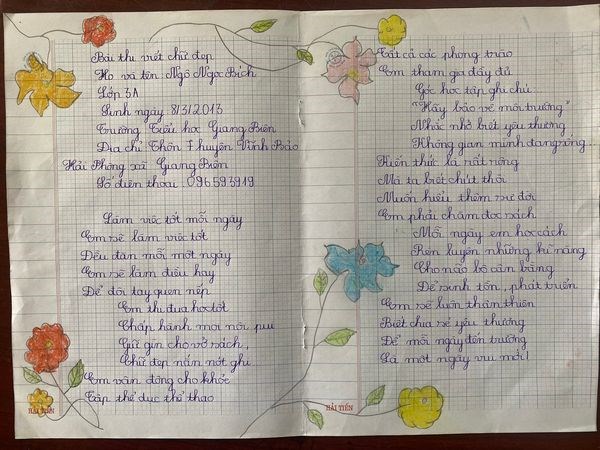 Bài thi viết chữ đẹp
Họ và tên: Ngô Ngọc Bích
Lớp 3A
Sinh ngày 8/3/2013
Trường Tiểu học Giang Biên
Địa chỉ Thôn 7 huyện Vĩnh Bảo
Hải Phòng xã Giang Biên
Số điện thoại: 096593919
Làm việc tốt mỗi ngày
Em sẽ làm việc tốt
Đều đặn mỗi một ngày
Em sẽ làm điều hay
Để đôi tay quen nếp
Em thi đua học tốt
Chấp hành mọi nội quy
Giữ gìn cho vở sạch,
Chữ đẹp nắn nót ghi
Em vận động cho khỏe
Tập thể dục thể thao
HẢI TIẾN
Tất cả các phong trào
Em tham gia đầy đủ
Góc học tập ghi chú
"Hãy bảo vệ môi trường"
Nhắc nhở biết yêu thương
Không gian mình đang sống.
Kiến thức là rất rộng
Mà ta biết chút thôi
Muốn hiểu thêm sự đời
Em phải chăm đọc sách
Mỗi ngày em học cách
Rèn luyện những kĩ năng
Cho não bộ cân bằng
Để sinh tồn, phát triển
Em sẽ luôn thân thiện
Biết chia sẻ yêu thương
Để mỗi ngày đến trường
Là một ngày vui mới!
HẢI TIẾN